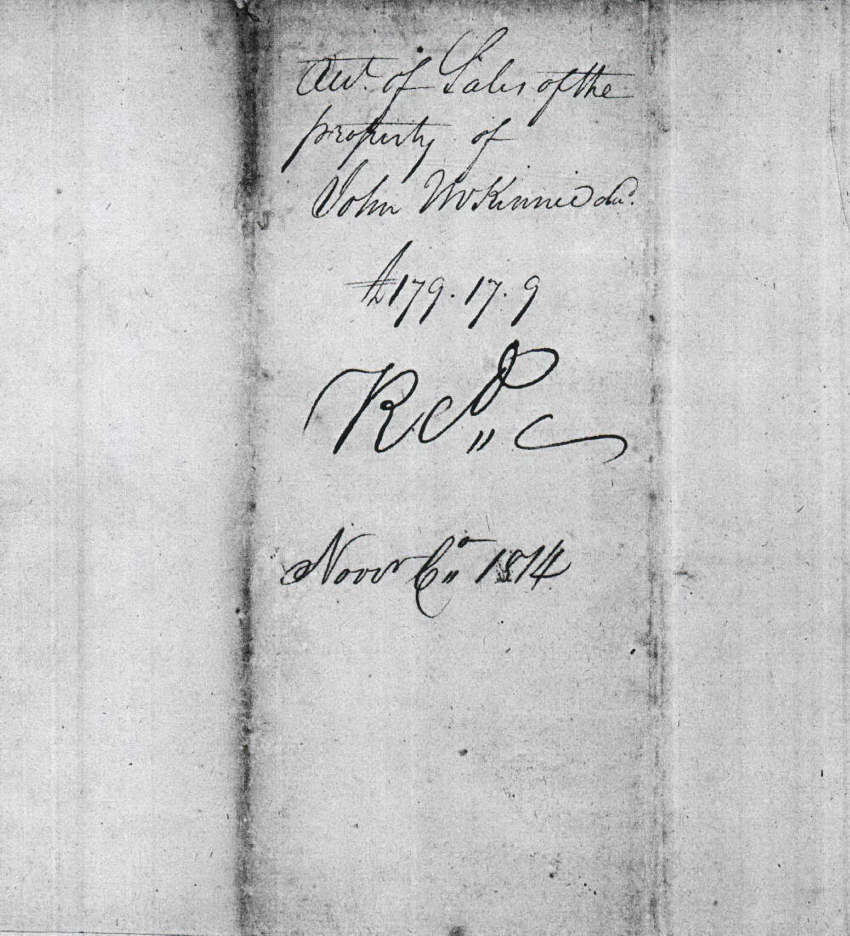 Acct. of Sales of the
property of
John McKinnie dec.
£179. 17. 9
Novr Co. 1814